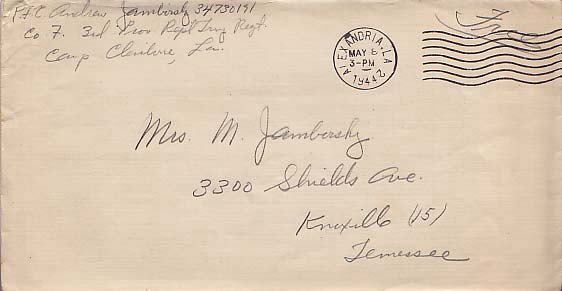 Pfc. Andrew Jambersky 34730191
Co F. 3rd Prov Repl Trng Regt.
Camp Claiborne, La.
ALEXANDRIA, LA
MAY 6
3-PM
1944
Free
Mrs. M. Jambersky
3300 Shields Ave.
Knoxville (15)
Tennessee